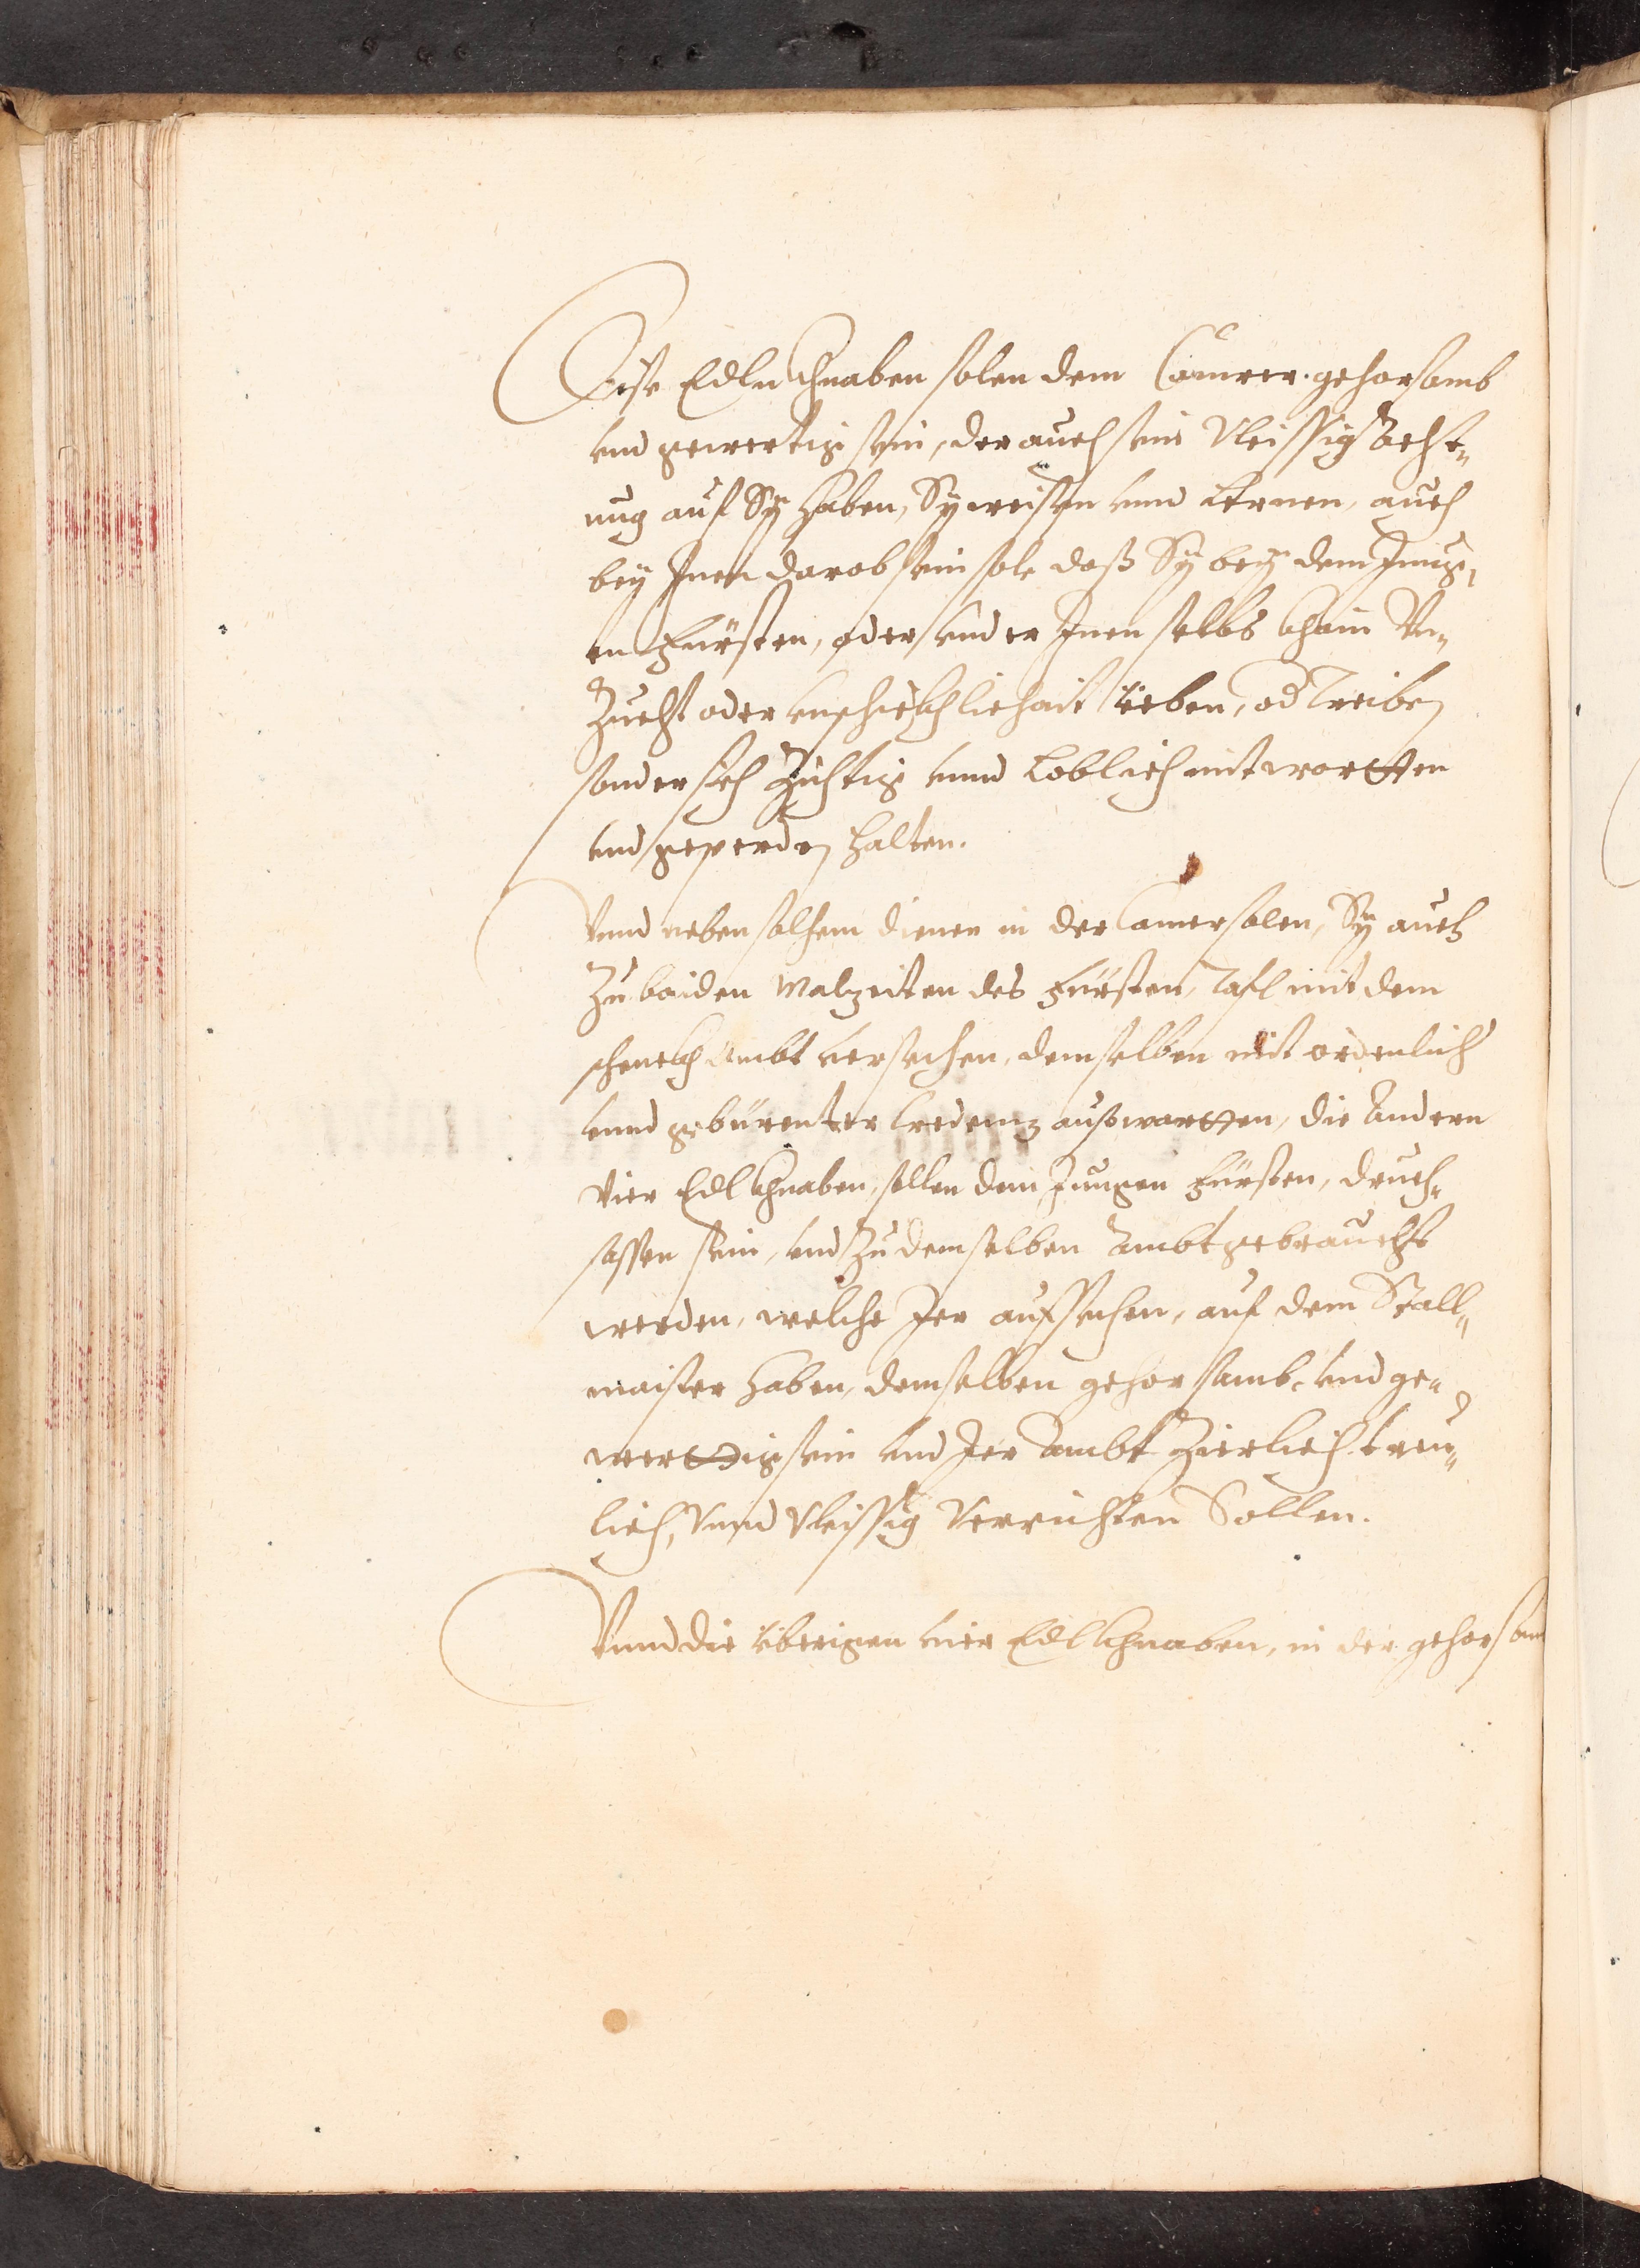 Dise Edln Khnaben solen dem Camrer gehorsamb
und gewertig sein, der auch sein Vleissig Acht„
ung auf Sy haben, Sy weisen unnd Lernen, auch
bey Inen darob sein sole daß Sy bey dem Jung„
en Fürsten, oder under Inen selbs khain Vn„
Zucht oder unschickhlichait Ueben, od Treiben
sonder sich Züchtig unnd Loblich mit wortten
und geperden halten.
Vnnd neben solhem dienen in der Camer solen, Sy auch
Zu baiden Malzeiten des Fürsten, Tafl mit dem
schenckh Ambt versechen, demselben mit ordenlich
unnd gebürenter Credenz aufwartten, die Andern
Vier Edl Khnaben, sollen dem Jungen Fürsten, druch„
sassen sein, und Zu demselben Ambt gebraucht
werden, welche Jer aufsechen, auf dem Stall„
maister haben, demselben gehorsamb, und ge„
werttig sein und Jer Ambt Zierlich treu„
lich, Vnnd Vleissig Verrichten Sollen.
Vnnd die überigen vier Edl Khnaben, in der gehorsam